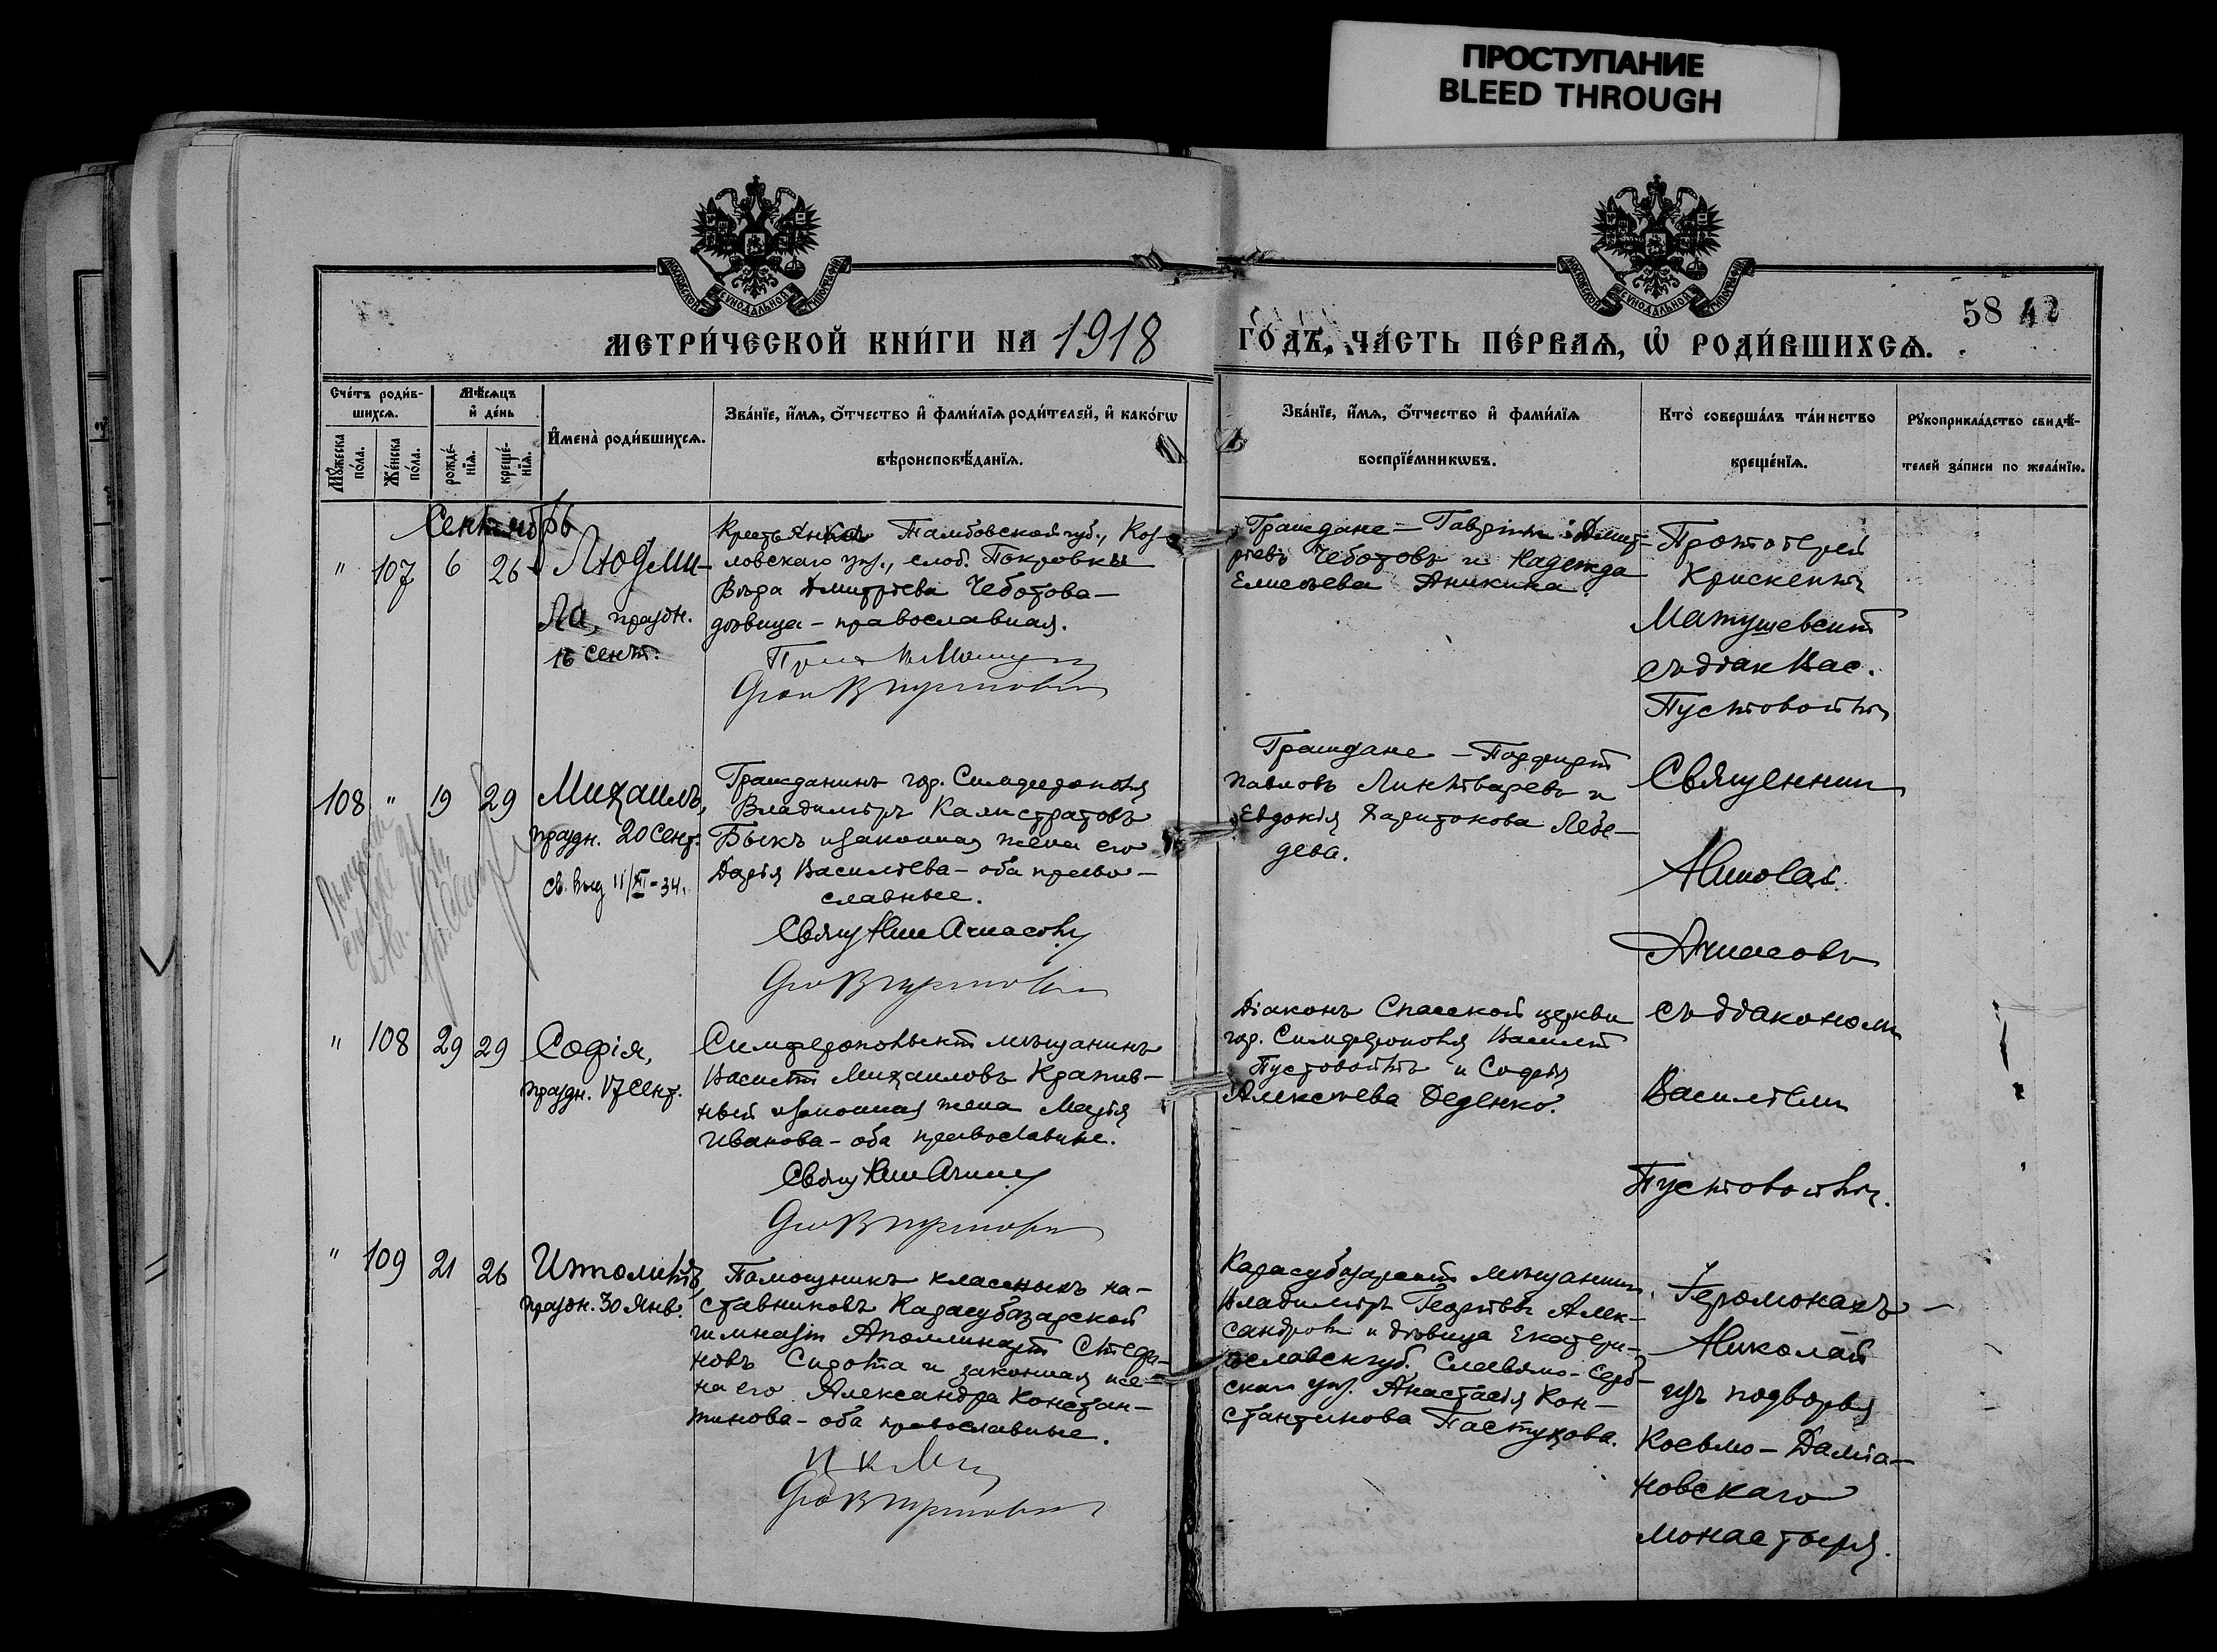 ПРОСТУПАНИЕ
BLEED THROUGH
МОСКОВСКОЙ СУНОДАЛЬНОЙ ТИПОГРАФІИ
МОСКОВСКОЙ СУНОДАЛЬНОЙ ТИПОГРАФІИ
58 42
МЕТРИ́ЧЕСКОЙ КНИ́ГИ НА 1918 ГО́ДЪ, ЧА́СТЬ ПЕ́РВАѦ, Ѡ РОДИ́ВШИХСѦ.
Сче́тъ роди́в-
шихсѧ.
Мꙋ́жеска по́ла.
Же́нска по́ла.
Мѣ́сѧцъ
и҆ де́нь
рожде́-
нїѧ.
креще́-
нїѧ.
И҆мена̀ роди́вшихсѧ.
Зва́нїе, и҆́мѧ, ѻ҆́тчество и҆ фами́лїѧ роди́телей, и҆ како́гѡ
вѣроисповѣ́данїѧ.
Зва́нїе, и҆́мѧ, ѻ҆́тчество и҆ фами́лїѧ
воспрїе́мникѡвъ.
Кто̀ соверша́лъ та́инство
креще́нїѧ.
Рꙋкоприкла́дство свидѣ́-
телей за́писи по жела́нїю.
Сентябрь
" 107 6 26 Людми-
ла, праздн.
16 сент.
Крестьянка Тамбовской губ., Коз-
ловскаго уѣз., слоб. Покровки
Вѣра Дмитріева Чеботова-
дѣвица - православная.
Граждане - Гавріилъ Дмит-
ріевъ Чеботовъ и Надежда
Елисѣева Аникина.
Протоіерей
Крискентъ
Матушевскій
съ діак. Вас.
Пустовойтъ
108 " 19 29 Михаилъ,
праздн. 20 сент.
св. выд 11/XI-34.
Гражданинъ гор. Симферополя
Владиміръ Калистратовъ
Быкъ и законная жена его
Дарія Василіева - оба право-
славные.
Свящ Ник Ачкасовъ
Граждане - Порфирій
Павловъ Линтваревъ и
Евдокія Харитонова Лебе-
дева.
Священникъ
Николай
Ачкасовъ
съ діакономъ
Василіемъ
Пустовойтъ.
" 108 29 29 Софія,
праздн. 17 сент.
Симферопольскій мѣщанинъ
Василій Михаиловъ Крапив-
ный и законная жена Марія
Иванова - оба православные.
Діаконъ Спасской церкви
гор. Симферополя Василій
Пустовойтъ и Софія
Алексѣева Деденко.
" 109 21 26 Ипполитъ,
праздн. 30 Янв.
Помощникъ классныхъ на-
ставниковъ Карасубазарской
гимназіи Аполлинарій Стефа-
новъ Сирота и законная же-
на его Александра Констан-
тинова - оба православные.
Карасубазарскій мѣщанинъ
Владиміръ Георгіевъ Алек-
сандровъ и дѣвица Екатери-
нославск. губ. Славяно-Серб-
скаго уѣз. Анастасія Кон-
стантинова Пастухова.
Іеромонахъ
Николай
изъ подворья
Косьмо-Даміа-
новскаго
монастыря.